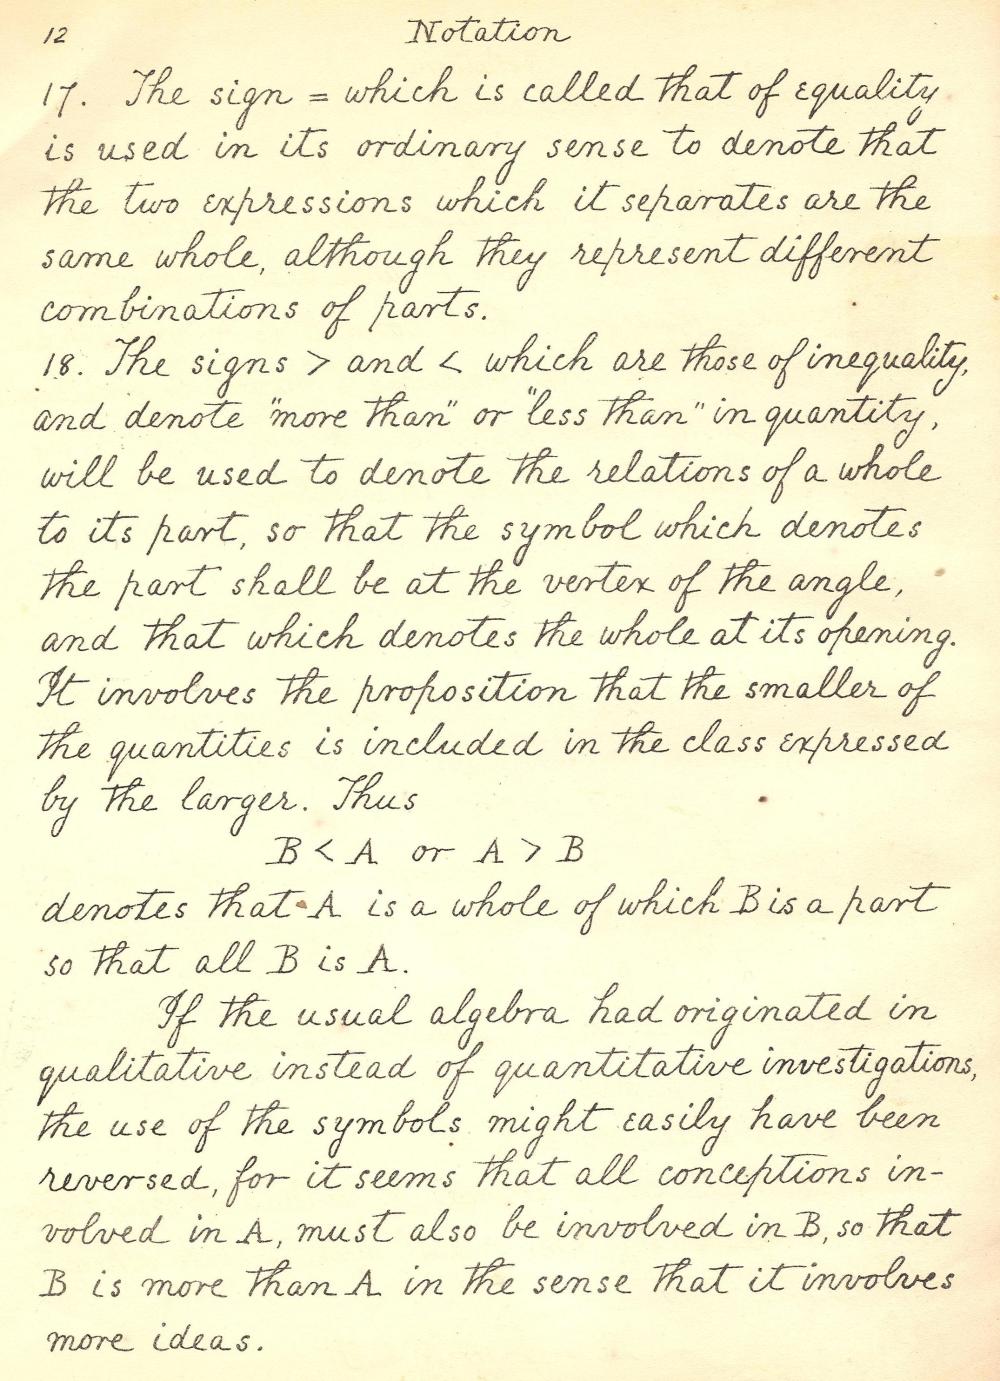 12 Notation
17. The sign = which is called that of equality
is used in its ordinary sense to denote that
the two expressions which it separates are the
same whole, although they represent different
combinations of parts.
18. The signs > and < which are those of inequality,
and denote "more than" or "less than" in quantity,
will be used to denote the relations of a whole
to its part, so that the symbol which denotes
the part shall be at the vertex of the angle,
and that which denotes the whole at its opening.
It involves the proposition that the smaller of
the quantities is included in the class expressed
by the larger. Thus
B < A or A > B
denotes that A is a whole of which B is a part
so that all B is A.
If the usual algebra had originated in
qualitative instead of quantitative investigations,
the use of the symbols might easily have been
reversed, for it seems that all conceptions in-
volved in A, must also be involved in B, so that
B is more than A in the sense that it involves
more ideas.